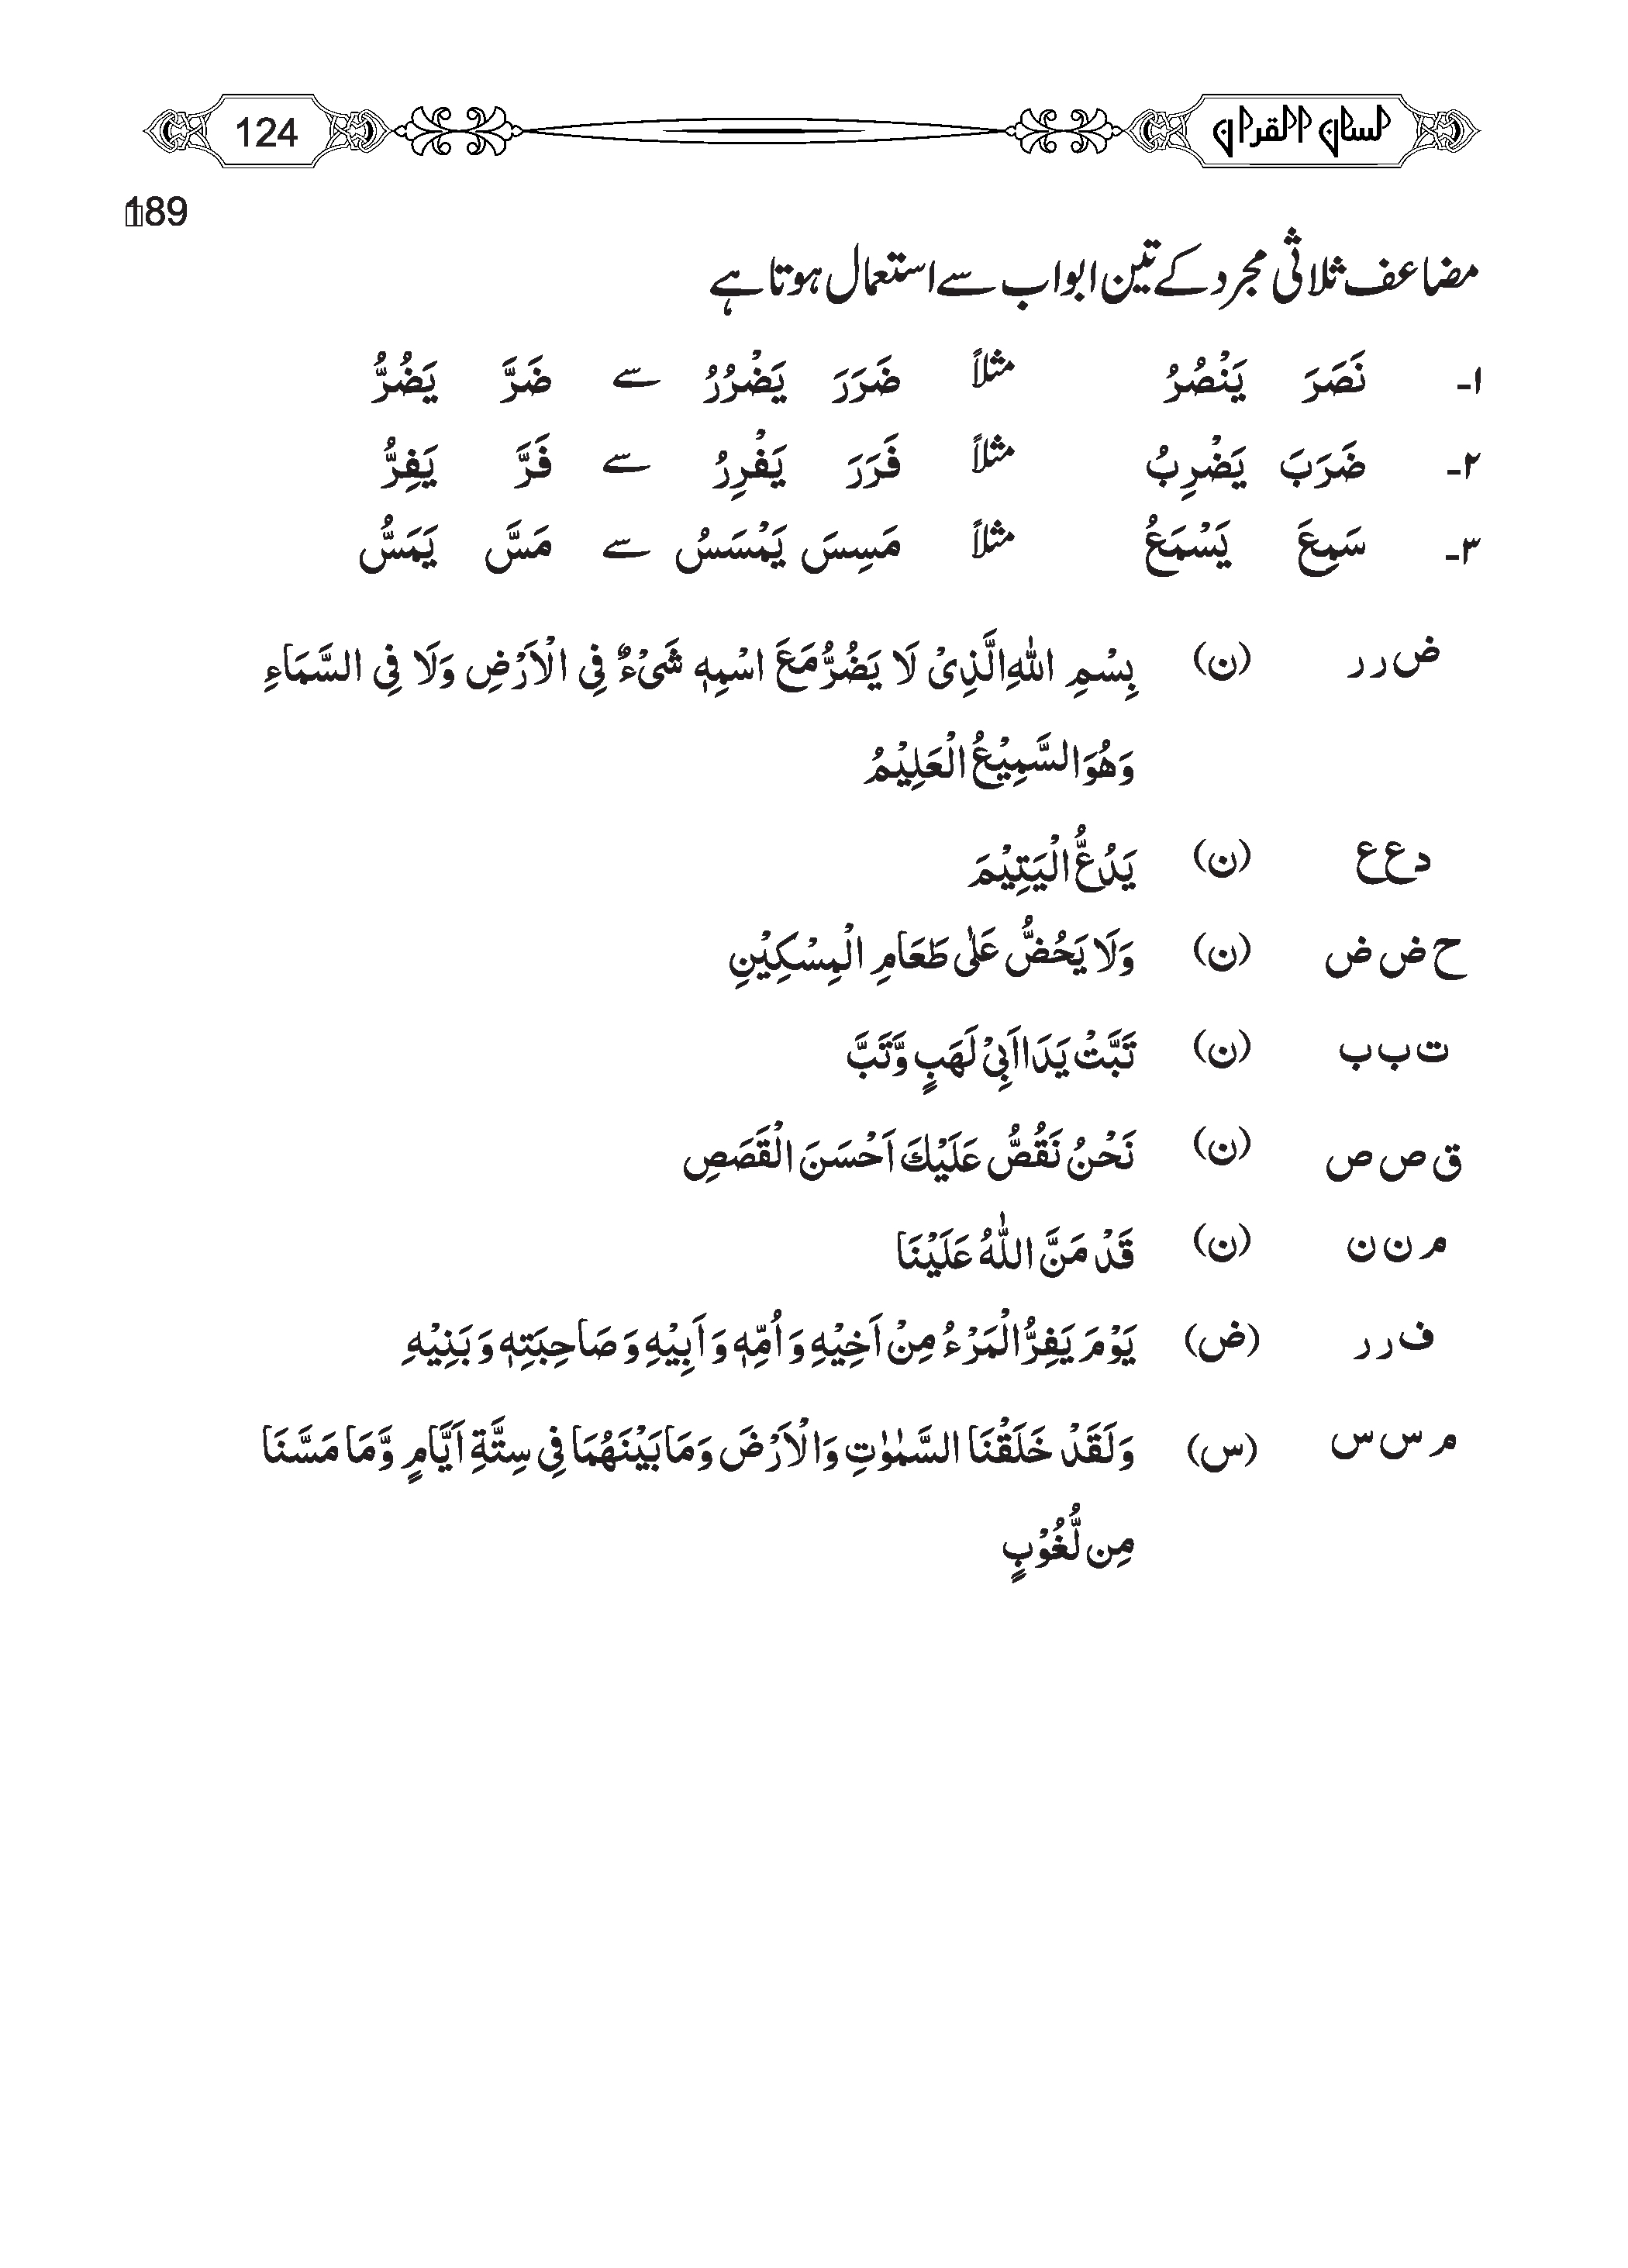 لسان القرآن 124
189
مضاعف ثلاثی مجرد کے تین ابواب سے استعمال ہوتا ہے
۱۔ نَصَرَ يَنْصُرُ مثلاً ضَرَرَ يَضْرُرُ سے ضَرَّ يَضُرُّ
۲۔ ضَرَبَ يَضْرِبُ مثلاً فَرَرَ يَفْرِرُ سے فَرَّ يَفِرُّ
۳۔ سَمِعَ يَسْمَعُ مثلاً مَسِسَ يَمْسَسُ سے مَسَّ يَمَسُّ
ض ر ر (ن) بِسْمِ اللّٰهِ الَّذِیْ لَا يَضُرُّ مَعَ اسْمِهٖ شَیْءٌ فِی الْاَرْضِ وَلَا فِی السَّمَاءِ
وَهُوَ السَّمِيْعُ الْعَلِيْمُ
د ع ع (ن) يَدُعُّ الْيَتِيْمَ
ح ض ض (ن) وَلَا يَحُضُّ عَلٰى طَعَامِ الْمِسْكِيْنِ
ت ب ب (ن) تَبَّتْ يَدَا اَبِیْ لَهَبٍ وَّتَبَّ
ق ص ص (ن) نَحْنُ نَقُصُّ عَلَيْكَ اَحْسَنَ الْقَصَصِ
م ن ن (ن) قَدْ مَنَّ اللّٰهُ عَلَيْنَا
ف ر ر (ض) يَوْمَ يَفِرُّ الْمَرْءُ مِنْ اَخِيْهِ وَ اُمِّهٖ وَ اَبِيْهِ وَ صَاحِبَتِهٖ وَ بَنِيْهِ
م س س (س) وَلَقَدْ خَلَقْنَا السَّمٰوٰتِ وَالْاَرْضَ وَمَا بَيْنَهُمَا فِی سِتَّةِ اَيَّامٍ وَّمَا مَسَّنَا
مِن لُّغُوْبٍ